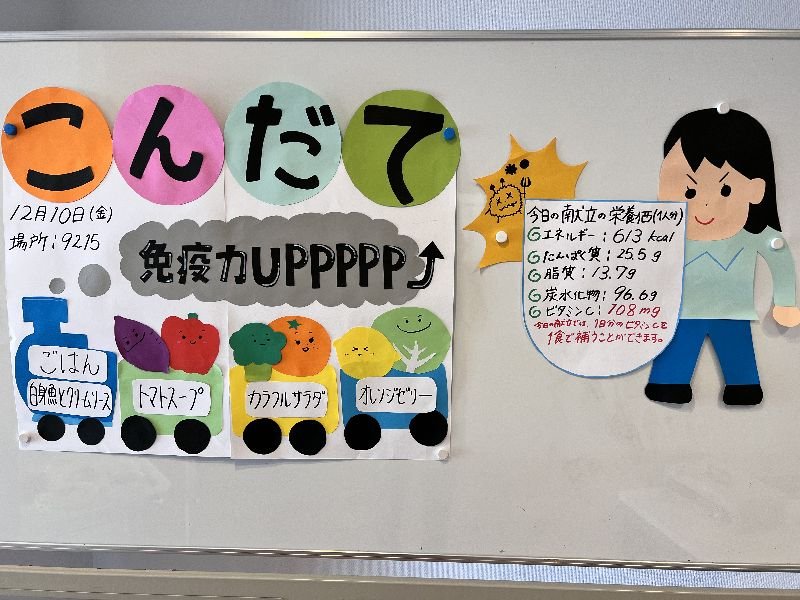 こんだて
12月10日(金)
場所:9215
免疫力UPPPPP
ごはん
白身魚とクリームソース
トマトスープ
カラフルサラダ
オレンジゼリー
今日の献立の栄養価(1人分)
エネルギー:613 kcal
たんぱく質:25.5g
脂質:13.7g
炭水化物:96.6g
ビタミンC:108mg
今日の献立では、1日分のビタミンCを
1食で補うことができます。